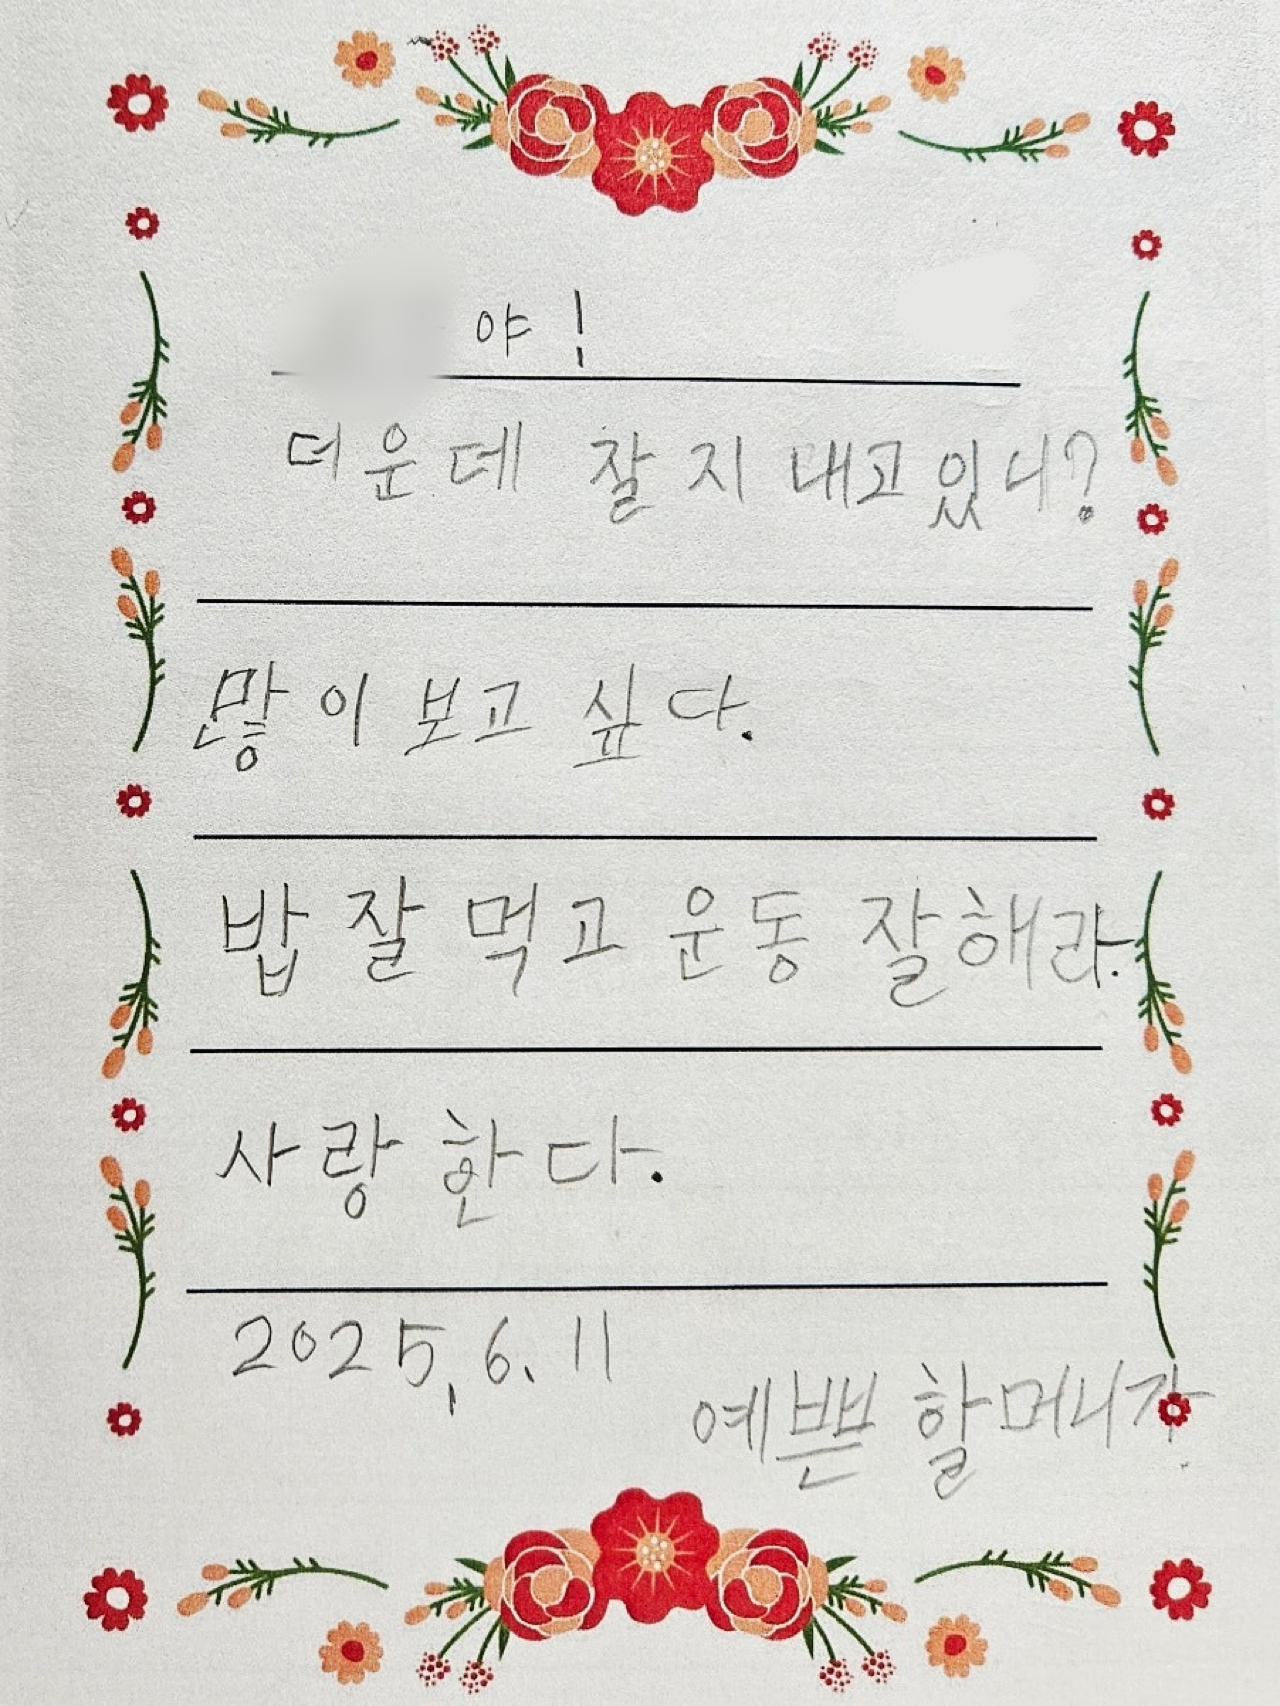 야!
더운데 잘 지내고있니?
많이 보고 싶다.
밥 잘 먹고 운동 잘해라.
사랑한다.
2025, 6. 11
예쁜 할머니가